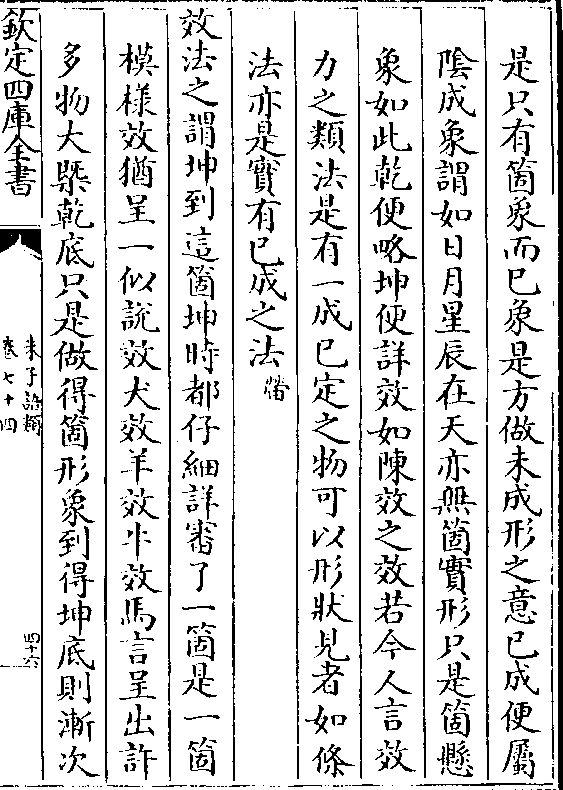 是只有箇象而已象是方做未成形之意已成便屬
陰成象謂如日月星辰在天亦無箇實形只是箇懸
象如此乾便略坤便詳效如陳效之效若今人言效
力之類法是有一成已定之物可以形狀見者如條
法亦是實有已成之法㽦
效法之謂坤到這箇坤時都仔細詳審了一箇是一箇
模樣效猶呈一似説效犬效羊效牛效馬言呈出許
多物大槩乾底只是做得箇形象到得坤底則漸次
欽定四庫全書
朱子語類
卷七十四
四十六